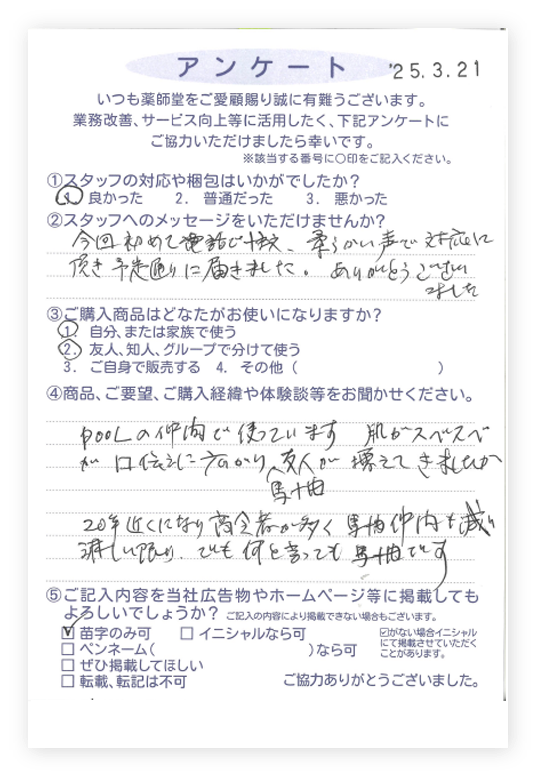 アンケート '25.3.21
いつも薬師堂をご愛顧賜り誠に有難うございます。
業務改善、サービス向上等に活用したく、下記アンケートに
ご協力いただけましたら幸いです。
※該当する番号に〇印をご記入ください。
①スタッフの対応や梱包はいかがでしたか?
1. 良かった 2. 普通だった 3. 悪かった
②スタッフへのメッセージをいただけませんか?
今回初めて電話で注文、柔らかい声で対応に
頂き予定通りに届きました。ありがとうござい
ました
③ご購入商品はどなたがお使いになりますか?
1. 自分、または家族で使う
2. 友人、知人、グループで分けて使う
3. ご自身で販売する 4. その他( )
④商品、ご要望、ご購入経緯や体験談等をお聞かせください。
pooLの仲間で使っています 肌がスベスベ
が口伝えに広がり、友人が増えてきましたが
馬油
20年近くになり高令者が多く馬油仲間も減り
淋しい限り、でも何と言っても馬油です
⑤ご記入内容を当社広告物やホームページ等に掲載しても
よろしいでしょうか? ご記入の内容により掲載できない場合もございます。
☑ 苗字のみ可 □ イニシャルなら可
□ ペンネーム( )なら可
□ ぜひ掲載してほしい
□ 転載、転記は不可
☑がない場合イニシャル
にて掲載させていただく
ことがあります。
ご協力ありがとうございました。